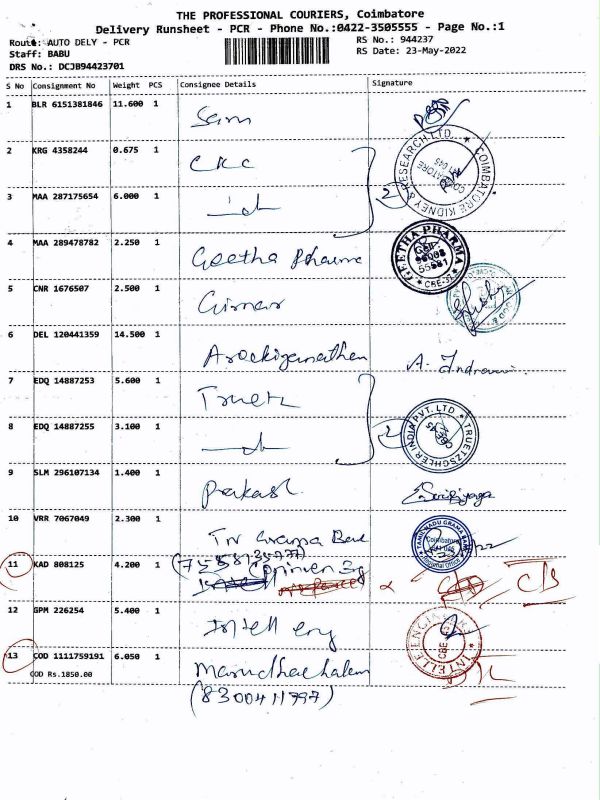 THE PROFESSIONAL COURIERS, Coimbatore
Delivery Runsheet - PCR - Phone No.:0422-3505555 - Page No.:1
Route: AUTO DELY - PCR
RS No.: 944237
Staff: BABU
RS Date: 23-May-2022
DRS No.: DCJB94423701
S No Consignment No Weight PCS Consignee Details Signature
1 BLR 6151381846 11.600 1
2 KRG 4358244 0.675 1 CKC
COIMBATORE KIDNEY & RESEARCH LTD.
COIMBATORE
641 045
3 MAA 287175654 6.000 1 2
4 MAA 289478782 2.250 1 Geetha Pharma
GEETHA PHARMA
CBE-37
5 CNR 1676507 2.500 1
6 DEL 120441359 14.500 1 Arockiyanathan A. Indrani
7 EDQ 14887253 5.600 1 Truetz
TRUETZSCHLER INDIA PVT. LTD.
8 EDQ 14887255 3.100 1 2
9 SLM 296107134 1.400 1 Prakash
10 VRR 7067049 2.300 1 TN Grama Bank
TAMIL NADU GRAMA BANK
Coimbatore
Regional Office
11 KAD 808125 4.200 1
C/S
12 GPM 226254 5.400 1 Intell eng
INTELLE ENGINEER
CBE
13 COD 1111759191 6.050 1 Marudhachalam
COD Rs.1850.00
(8300411797)